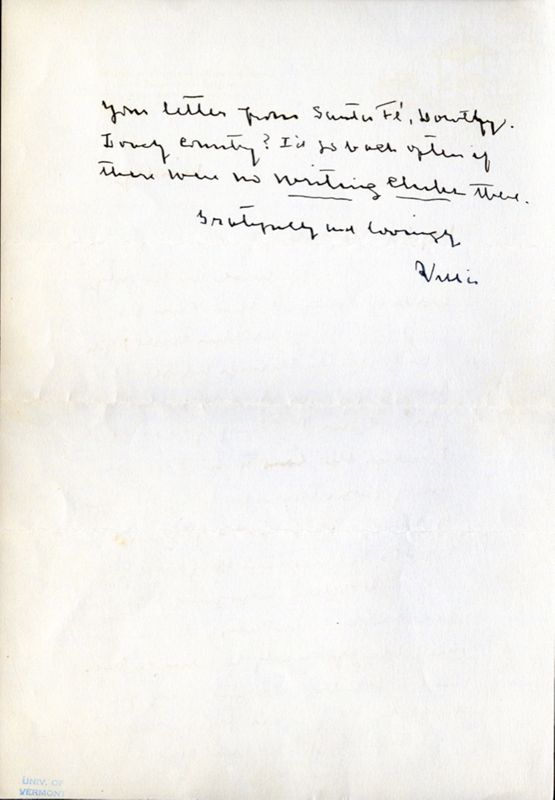 your letter from Santa Fé, Dorothy.
Lovely country? I'd go back often if
there were no writing clubs there.
Gratefully and lovingly
Willa
UNIV. OF
VERMONT